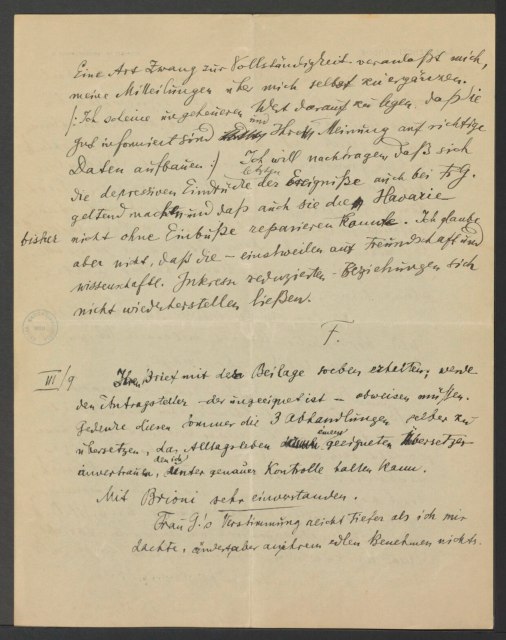 Eine Art Zwang zur Vollständigkeit veranlaßt mich,
meine Mitteilungen über mich selbst zu ergänzen.
/: Ich scheine ungeheueren Wert darauf zu legen, daß Sie
gut informiert sind und Ihre Meinung auf richtige
Daten aufbauen :/ Ich will nachtragen, daß sich
die depressiven Eindrücke der letzten Ereigniße auch bei Fr. G.
geltend machten und daß auch sie die Havarie
bisher nicht ohne Einbuße reparieren konnte. Ich glaube
aber nicht, daß die – einstweilen auf Freundschaft und
wissenschaftl. Interesse reduzierten – Beziehungen sich
nicht wiederherstellen ließen.
F.
III/9 Ihren Brief mit der Beilage soeben erhalten; werde
den Antragsteller – der ungeeignet ist – abweisen müssen.
Gedenke diesen Sommer die 3 Abhandlungen selber zu
übersetzen, das Alltagsleben einem geeigneten Übersetzer
anvertrauen, den ich unter genauer Kontrolle halten kann.
Mit Brioni sehr einverstanden.
Frau G.'s Verstimmung reicht tiefer als ich mir
dachte, ändert aber an ihrem edlen Benehmen nichts.